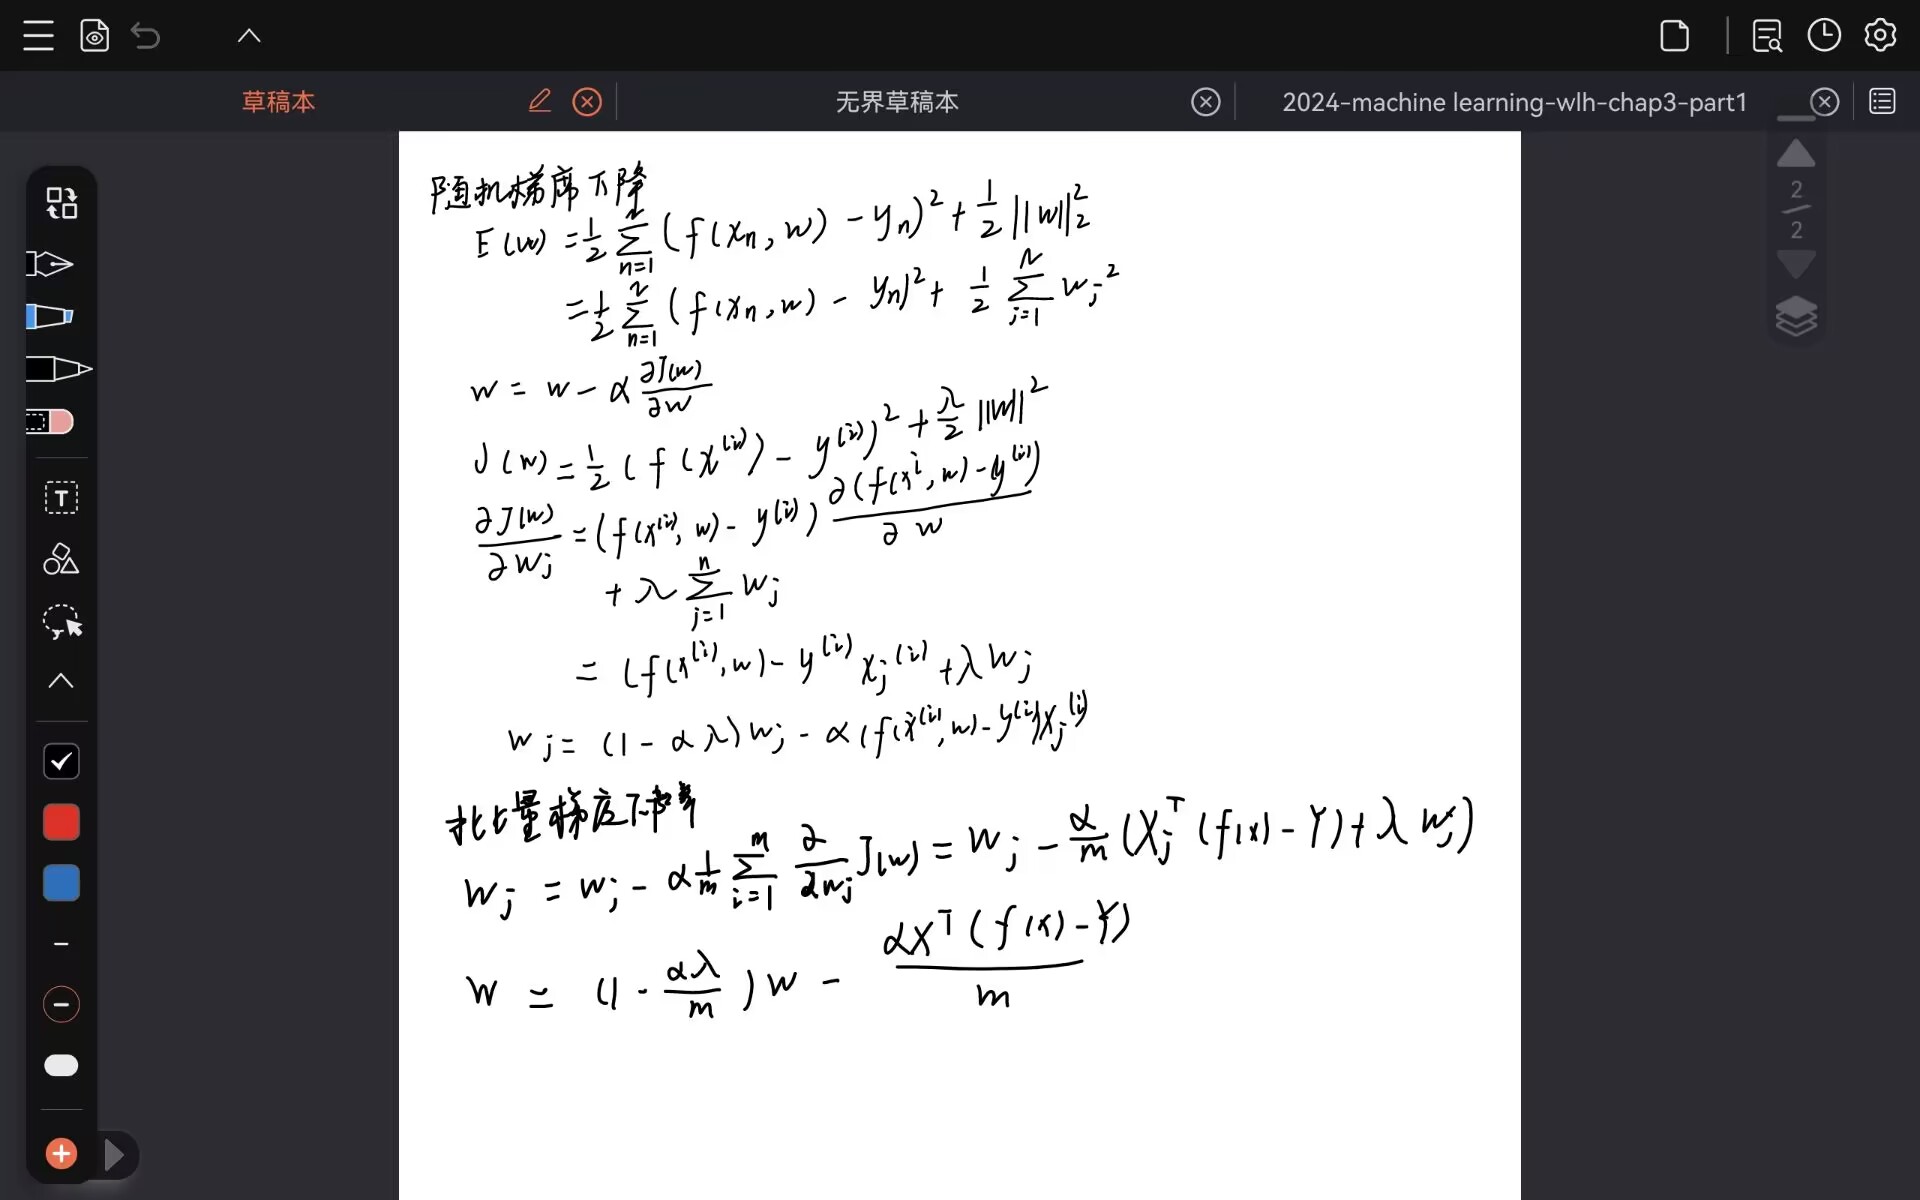 草稿本
无界草稿本
2024-machine learning-wlh-chap3-part1
2
2
T
随机梯席下降
E(w) = 1/2 ∑_{n=1}^{N} (f(x_n, w) - y_n)^2 + 1/2 ||w||_2^2
= 1/2 ∑_{n=1}^{N} (f(x_n, w) - y_n)^2 + 1/2 ∑_{j=1}^{N} w_j^2
w = w - α ∂J(w)/∂w
J(w) = 1/2 (f(x^{(i)}) - y^{(i)})^2 + λ/2 ||w||^2
∂J(w)/∂w_j = (f(x^{(i)}, w) - y^{(i)}) ∂(f(x^i, w) - y^{(i)})/∂w
+ λ ∑_{j=1}^{n} w_j
= (f(x^{(i)}, w) - y^{(i)} x_j^{(i)} + λ w_j
w_j = (1 - αλ) w_j - α (f(x^{(i)}, w) - y^{(i)}) x_j^{(i)}
批量梯度下降
w_j = w_j - α 1/m ∑_{i=1}^{m} ∂/∂w_j J(w) = w_j - α/m (X_j^T (f(x) - Y) + λ w_j)
w = (1 - αλ/m) w - αX^T (f(x) - Y)/m